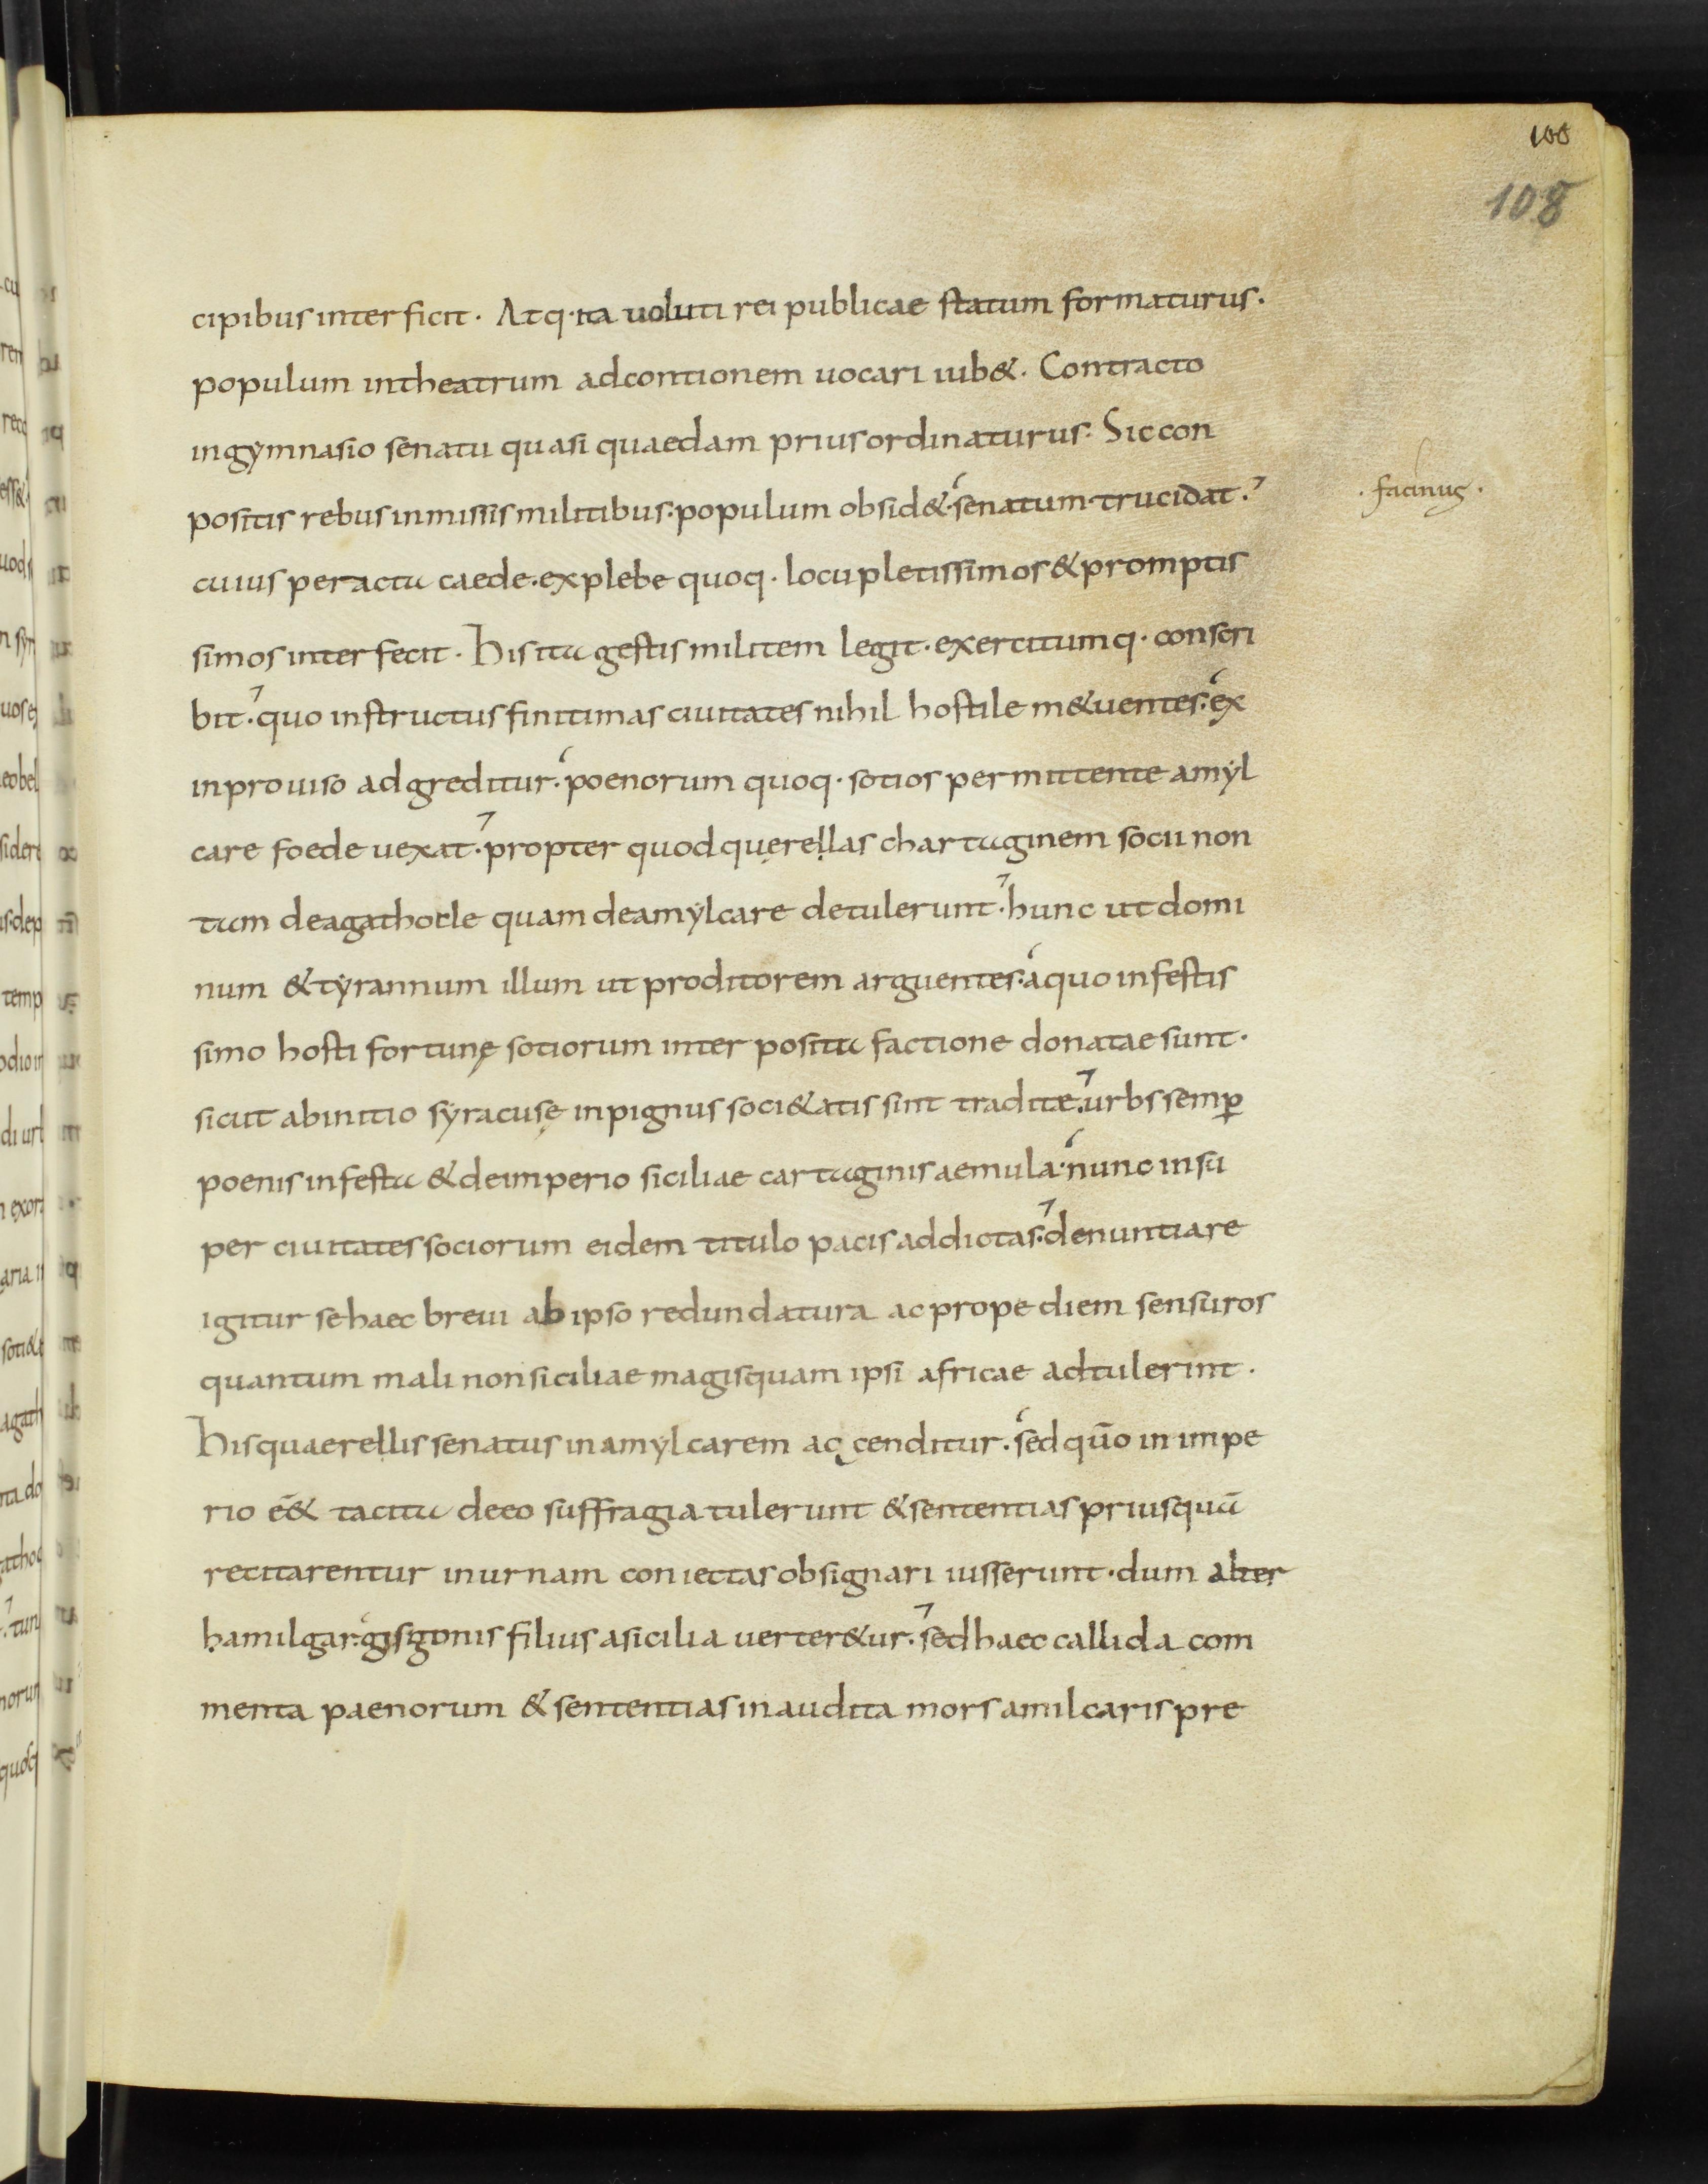 100
108
cipibus interficit. Atq· ita uoluti rei publicae statum formaturus.
populum intheatrum adcontionem uocari iub&. Contracto
ingymnasio senatu quasi quaedam priusordinaturus. Siccon
positis rebus inmissis militibus· populum obsid&· senatum· trucidat.
· facinus ·
cuius peractu caede· explebe quoq· locupletissimos & promptis
simos interfecit. His ita gestis militem legit· exercitumq· conscri
bit· quo instructus finitimas ciuitates nihil hostile m&uentes· ex
inprouiso adgreditur· poenorum quoq· sotios permittente amyl
care foede uexat· propter quod querellas chartaginem socii non
tam deagathocle quam deamylcare detulerunt· hunc ut domi
num & tyrannum illum ut proditorem arguentes· aquo infestis
simo hosti fortunę sotiorum inter posita factione donatae sunt·
sicut abinitio syracusę inpignus soci&atis sint tradite· urbs semꝑ
poenis infesta & deimperio siciliae cartaginis aemula· nunc insu
per ciuitates sociorum eidem titulo pacis addictas· denuntiare
igitur se haec breui ab ipso redundatura ac prope diem sensuros
quantum mali non siciliae magisquam ipsi africae adtulerint.
Hisquaerellis senatus inamylcarem accenditur· sed qūo in impe
rio ēē& tacita deeo suffragia tulerunt & sententias priusquā
recitarentur inurnam coniectas obsignari iusserunt· dum alter
hamilgar· gisgonis filius asicilia uerter&ur· sed haec callida com
menta paenorum & sententias inaudita mors amilcaris pre